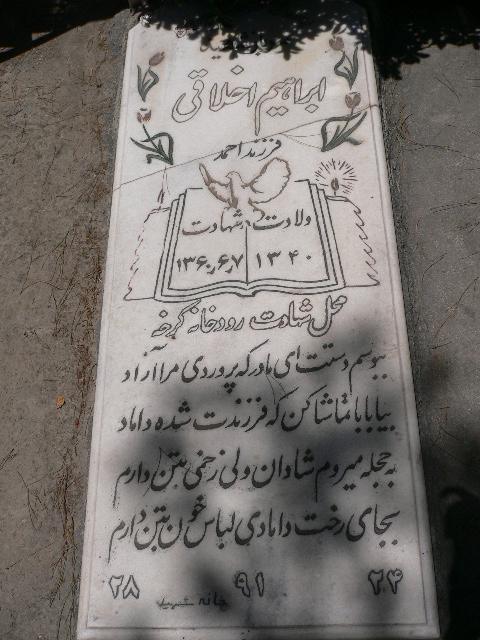 ابراهیم اخلاقی
فرزند احمد
ولادت شهادت
۱۳۴۰ ۱۳۶۰٫۶٫۷
محل شهادت رودخانه کرخه
ببوسم دستت ای مادر که پروردی مرا آزاد
بیا بابا تماشا کن که فرزندت شده داماد
به حجله میروم شادان ولی زخمی بتن دارم
بجای رخت دامادی لباس خون بتن دارم
۲۴ ۹۱ ۲۸
خانه شهید